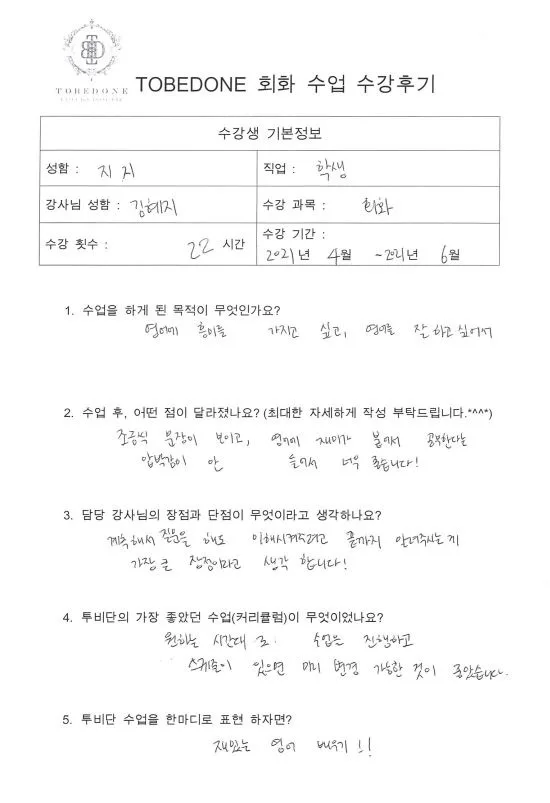 TOBEDONE
TOBEDONE 회화 수업 수강후기
수강생 기본정보
성함 : 지지 직업 : 학생
강사님 성함 : 김혜지 수강 과목 : 회화
수강 횟수 : 22 시간 수강 기간 : 2021년 4월 ~2021년 6월
1. 수업을 하게 된 목적이 무엇인가요?
영어에 흥미를 가지고 싶고, 영어를 잘 하고 싶어서
2. 수업 후, 어떤 점이 달라졌나요? (최대한 자세하게 작성 부탁드립니다.*^^*)
조금씩 문장이 보이고, 영어에 재미가 붙어서 공부한다는
압박감이 안 들어서 너무 좋습니다!
3. 담당 강사님의 장점과 단점이 무엇이라고 생각하나요?
계속해서 질문을 해도 이해시켜주려고 끝까지 알려주시는게
가장 큰 장점이라고 생각 합니다!
4. 투비단의 가장 좋았던 수업(커리큘럼)이 무엇이었나요?
원하는 시간대 로 수업을 진행하고
스케줄이 있으면 미리 변경 가능한 것이 좋았습니다.
5. 투비단 수업을 한마디로 표현 하자면?
재밌는 영어 배우기 !!